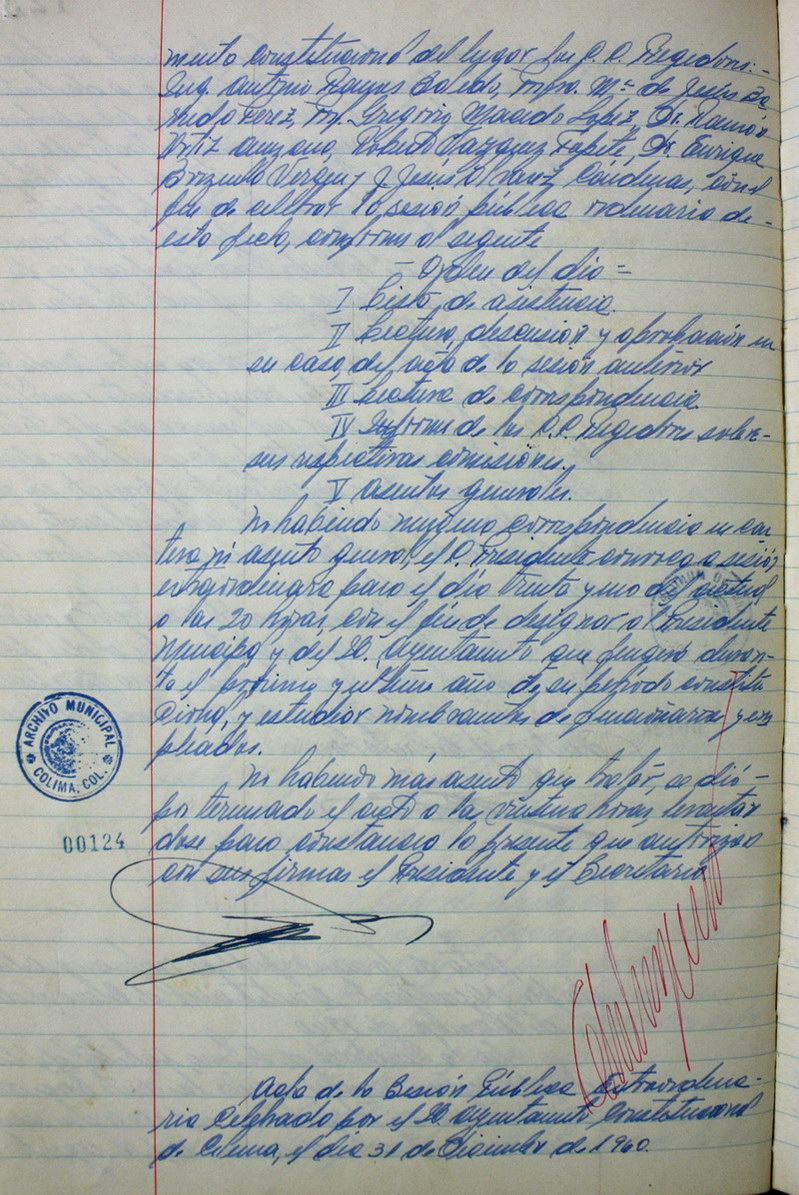 miento constitucional del lugar los C.C. Regidores:-
Ing. Antonio Ramos Salido, Profra. Ma. de Jesús
Pérez, Gregorio Macedo López, Dr. Ramón
Ortiz Anzano, Roberto Vázquez Tapete, Dr. Enrique
Brizuela Virgen y J. Jesús Alvarez Cárdenas, con el
fin de celebrar la sesión pública ordinaria de-
esta fecha, conforme al siguiente
- Orden del día =
I Lista de asistencia.
II Lectura, discusión y aprobación en
su caso, del acta de la sesión anterior
III Lectura de correspondencia
IV Informe de los C.C. Regidores sobre-
sus respectivas comisiones.
V Asuntos generales.
No habiendo ninguna correspondencia en car-
tera ni asunto general, el C. Presidente convoca a sesión
extraordinaria para el día treinta y uno del actual
a las 20 horas, con el fin de designar al Presidente
Municipal y del H. Ayuntamiento que fungirá duran-
te el próximo y último año de su período constitu
cional, y estudiar nombramientos de funcionarios y em
pleados.
No habiendo más asunto que tratar, se dió-
por terminado el acto a las horas, levantán
dose para constancia la presente que autorizan
con sus firmas el Presidente y el Secretario
ARCHIVO MUNICIPAL
COLIMA, COL.
00124
Acta de la Sesión Pública Extraordina-
ria Celebrada por el H. Ayuntamiento Constitucional
de Colima, el día 31 de Diciembre de 1960.